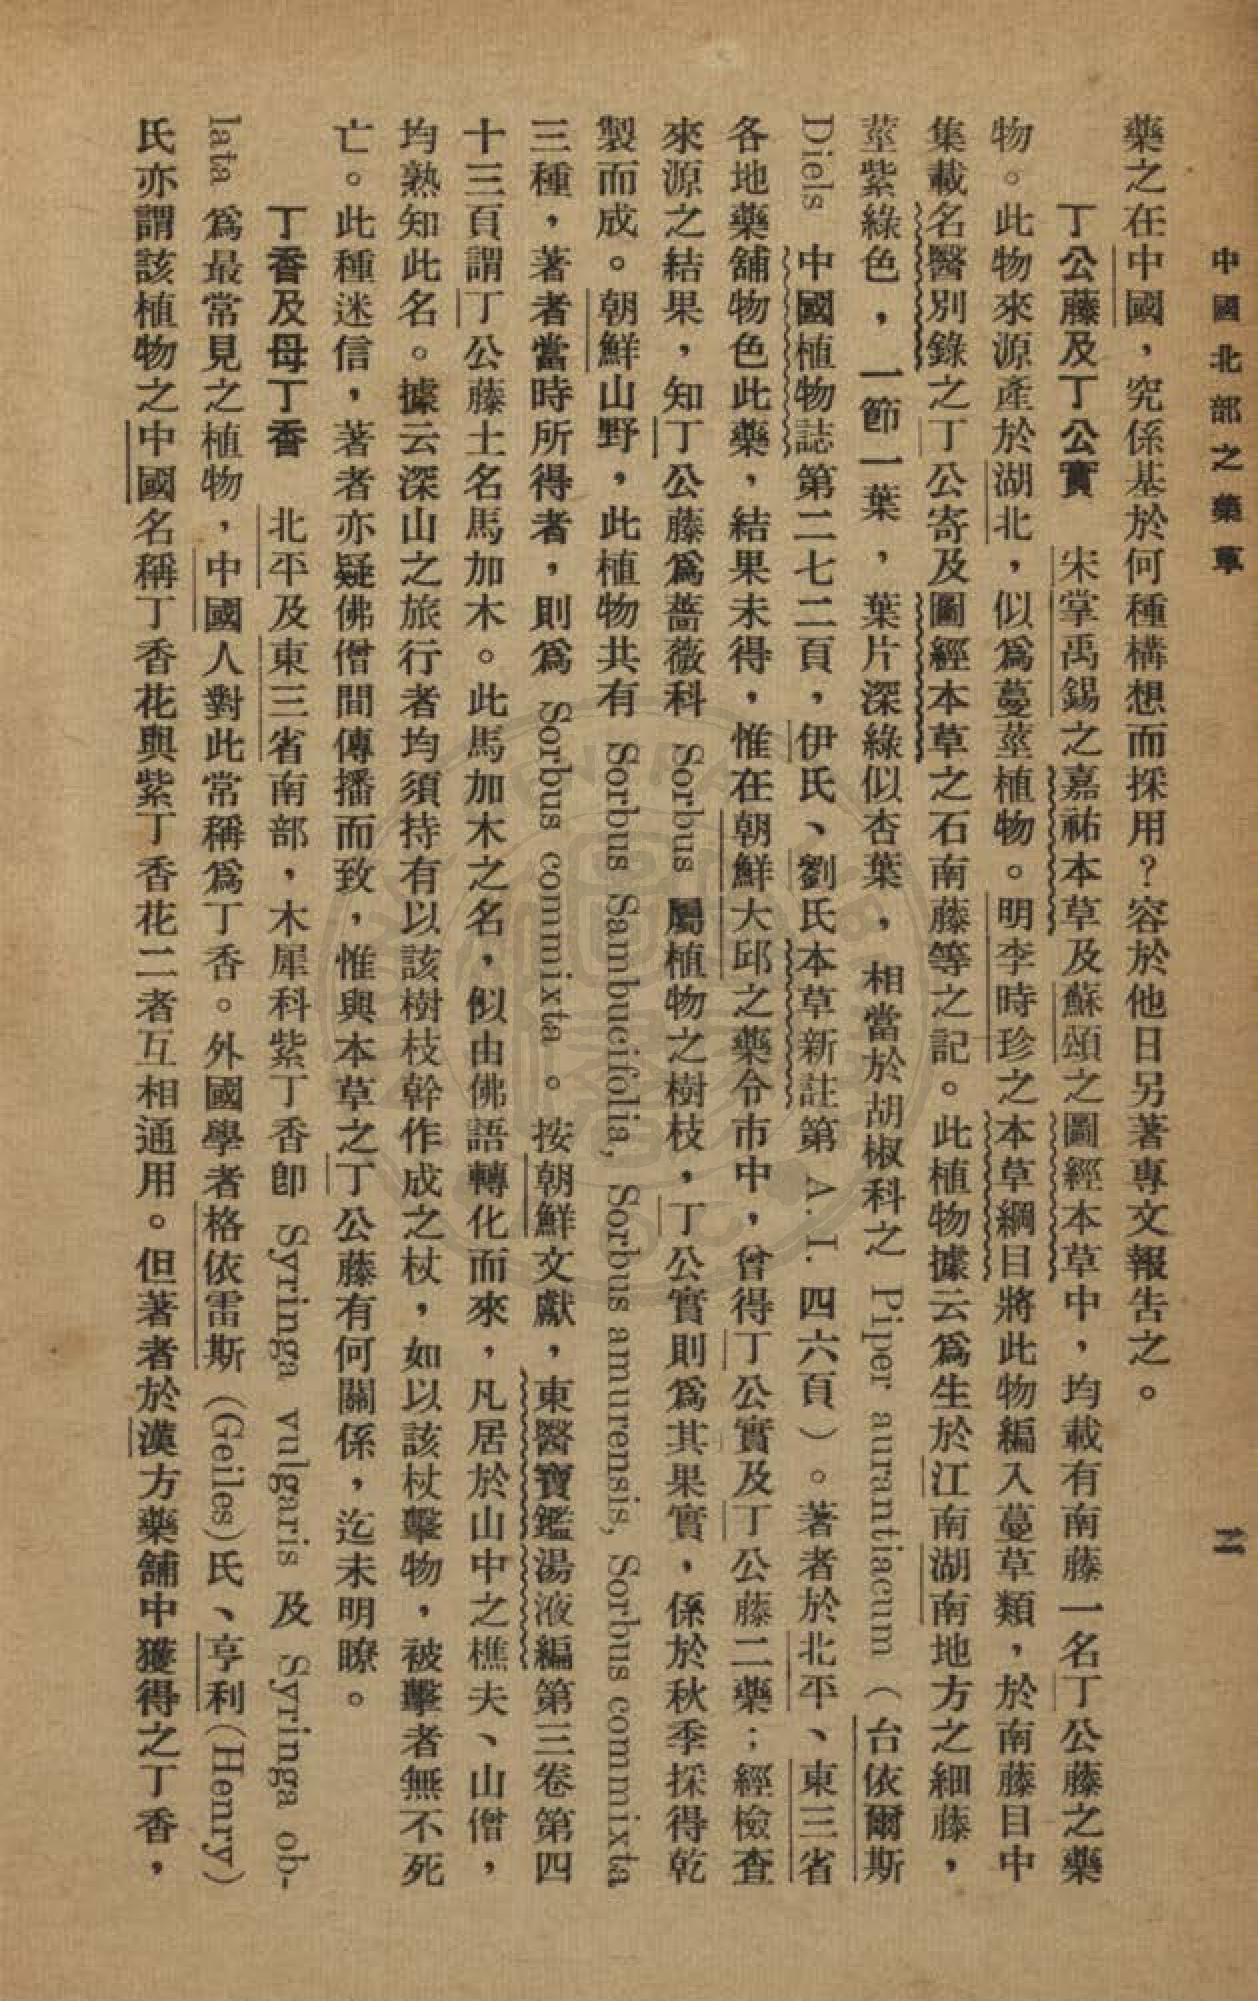 中國北部之藥草
二
藥之在中國，究係基於何種構想而採用？容於他日另著專文報告之。
丁公藤及丁公實　宋掌禹錫之嘉祐本草及蘇頌之圖經本草中，均載有南藤一名丁公藤之藥
物。此物來源產於湖北，似為蔓莖植物。明李時珍之本草綱目將此物編入蔓草類，於南藤目中
集載名醫別錄之丁公寄及圖經本草之石南藤等之記。此植物據云為生於江南湖南地方之細藤，
莖紫綠色，一節一葉，葉片深綠似杏葉，相當於胡椒科之 Piper aurantiacum（台依爾斯
Diels 中國植物誌第二七二頁，伊氏、劉氏本草新註第 A. I. 四六頁）。著者於北平、東三省
各地藥舖物色此藥，結果未得，惟在朝鮮大邱之藥令市中，曾得丁公實及丁公藤二藥；經檢查
來源之結果，知丁公藤為薔薇科 Sorbus 屬植物之樹枝，丁公實則為其果實，係於秋季採得乾
製而成。朝鮮山野，此植物共有 Sorbus Sambucifolia, Sorbus amurensis, Sorbus commixta
三種，著者當時所得者，則為 Sorbus commixta。按朝鮮文獻，東醫寶鑑湯液編第三卷第四
十三頁謂丁公藤土名馬加木。此馬加木之名，似由佛語轉化而來，凡居於山中之樵夫、山僧，
均熟知此名。據云深山之旅行者均須持有以該樹枝幹作成之杖，如以該杖擊物，被擊者無不死
亡。此種迷信，著者亦疑佛僧間傳播而致，惟與本草之丁公藤有何關係，迄未明瞭。
丁香及母丁香　北平及東三省南部，木犀科紫丁香即 Syringa vulgaris 及 Syringa ob-
lata 為最常見之植物，中國人對此常稱為丁香。外國學者格依雷斯(Geiles)氏、亨利(Henry)
氏亦謂該植物之中國名稱丁香花與紫丁香花二者互相通用。但著者於漢方藥舖中獲得之丁香，